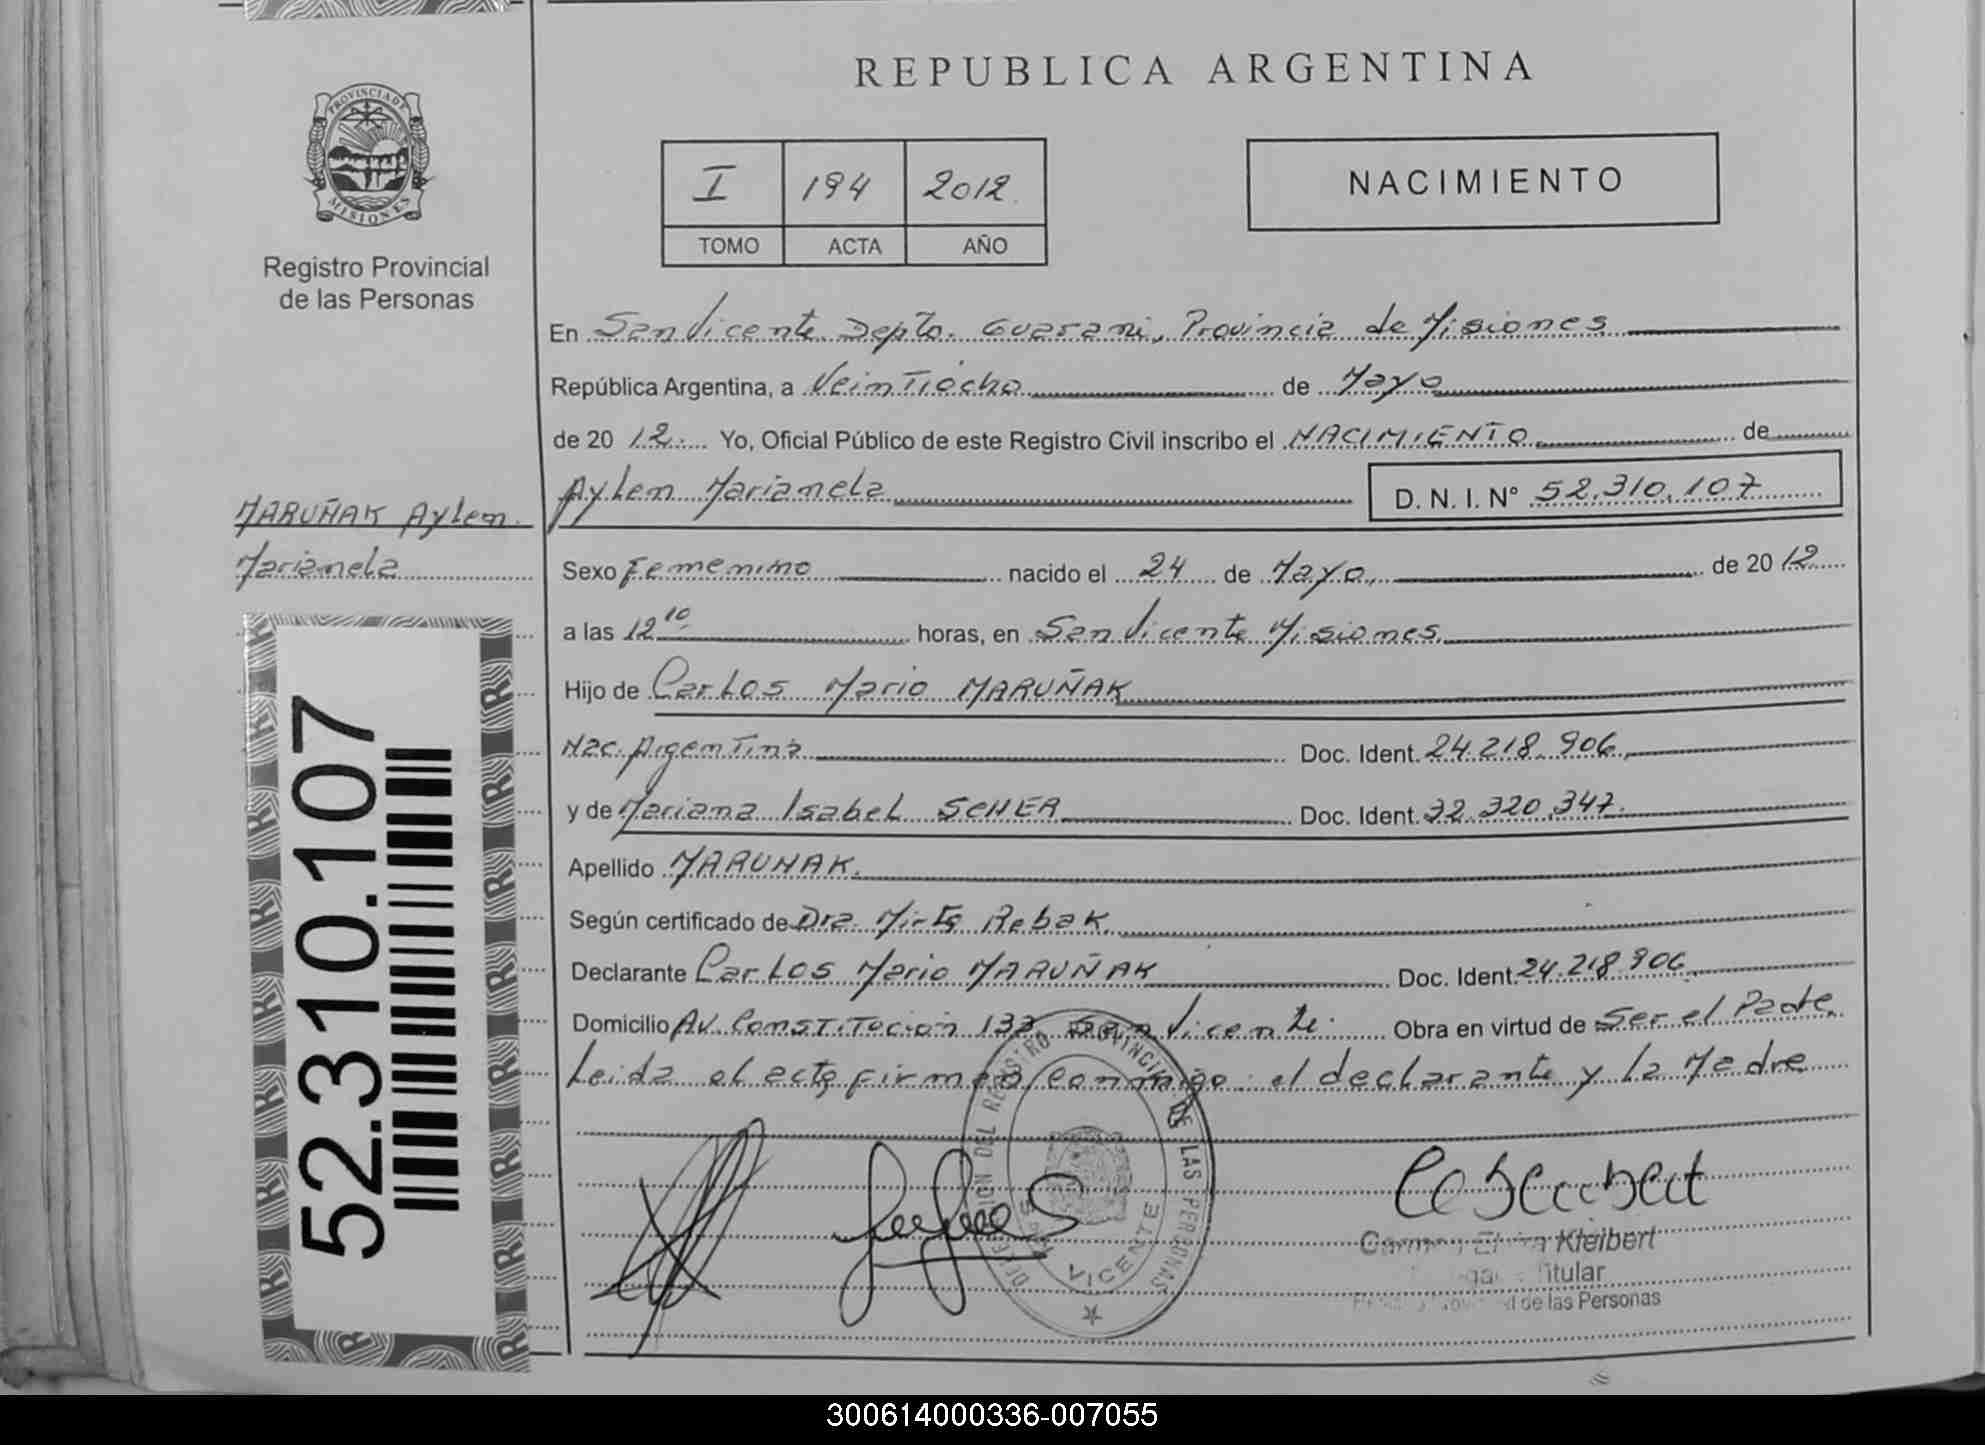 REPUBLICA ARGENTINA
PROVINCIA DE
MISIONES
Registro Provincial
de las Personas
I 194 2012
TOMO ACTA AÑO
NACIMIENTO
En San Vicente Depto. Guarani, Provincia de Misiones
República Argentina, a Veintiocho de Mayo
de 2012. Yo, Oficial Público de este Registro Civil inscribo el NACIMIENTO de
Aylen Marianela D. N. I. N° 52.310.107
MARUÑAK Aylen
Marianela
Sexo Femenino nacido el 24 de Mayo de 2012
a las 12 10 horas, en San Vicente Misiones
Hijo de Carlos Mario MARUÑAK
Nac. Argentina Doc. Ident. 24.218.906
y de Mariana Isabel SCHER Doc. Ident. 32.320.347.
Apellido MARUNAK.
Según certificado de Dra. Mirta Rebak
Declarante Carlos Mario MARUÑAK Doc. Ident. 24.218.906
Domicilio Av Constitocion 133 San Vicente Obra en virtud de Ser el Padre
Leida el acta firman conmigo el declarante y la Madre
52.310.107
DELEGACION DEL REGISTRO PROVINCIAL DE LAS PERSONAS
SAN VICENTE
Carmen Elvira Kleibert
Titular
de las Personas
300614000336-007055